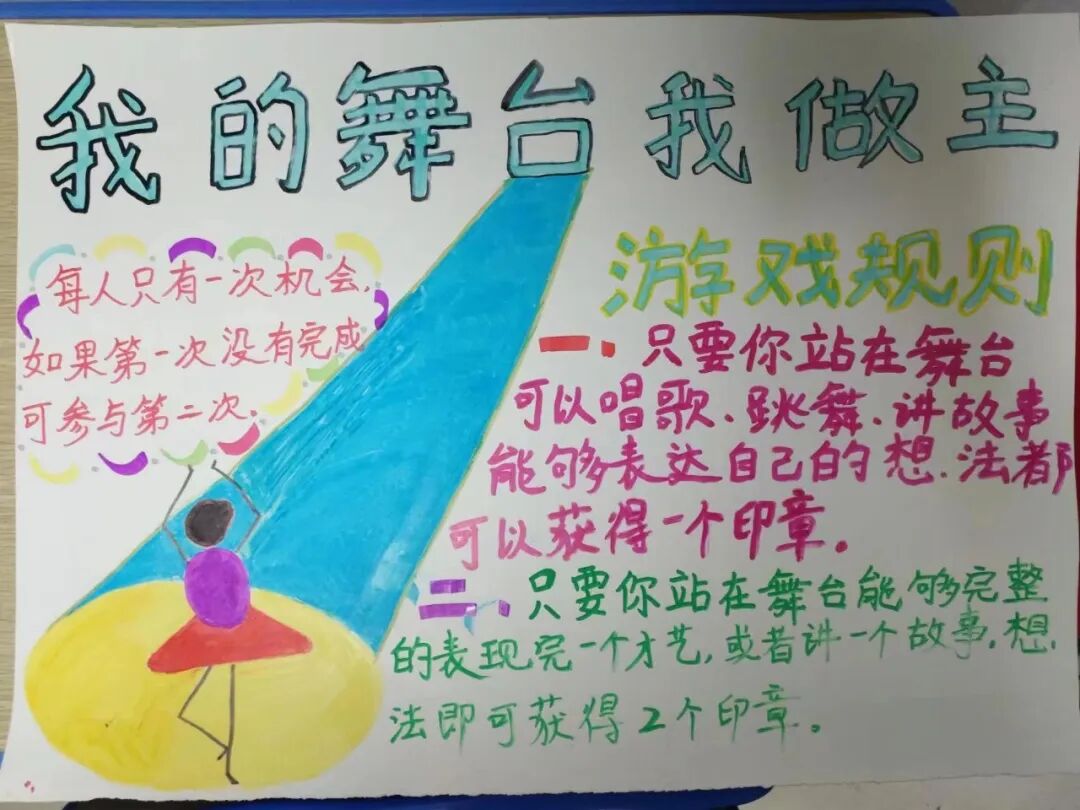 我的舞台我做主
每人只有一次机会.
如果第一次没有完成
可参与第二次.
游戏规则
一、只要你站在舞台
可以唱歌、跳舞、讲故事
能够表达自己的想.法都
可以获得一个印章。
二、只要你站在舞台能够完整
的表现完一个才艺,或者讲一个故事.想.
法即可获得2个印章。